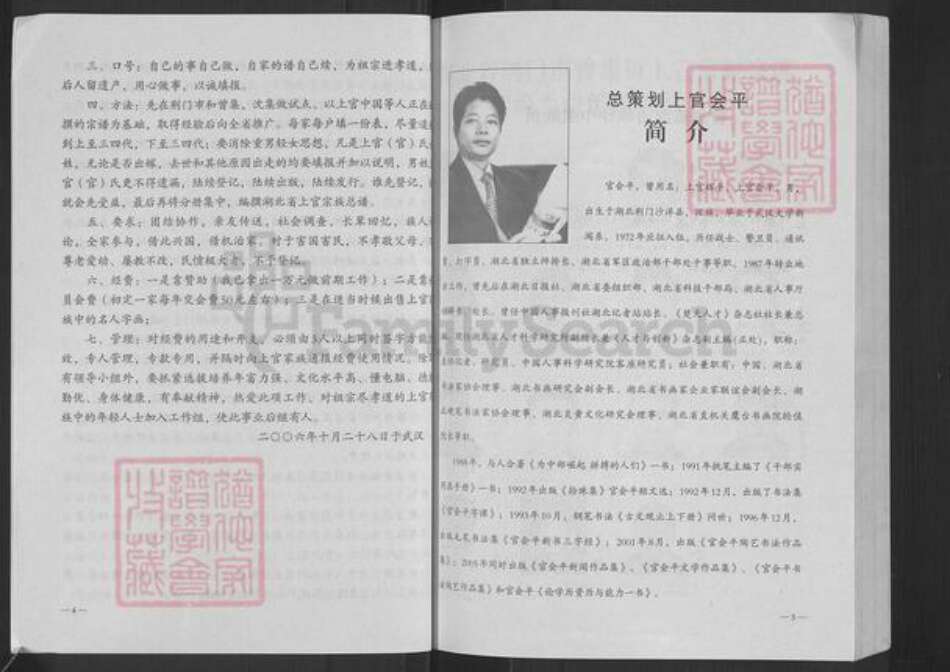 三、口号：自己的事自己做，自家的谱自己续，为祖宗进孝道，
后人留遗产，用心做事，以诚填报。
四、方法：先在荆门市和曾集、沈集做试点，以上官中国等人正在
撰的宗谱为基础，取得经验后向全省推广。每家每户填一份表，尽量追
到上至三四代，下至三四代；要消除重男轻女思想，凡是上官（官）氏
姓，无论是否出嫁，去世和其他原因出走的均要填报并加以说明，男姓
官（官）氏更不得遗漏，陆续登记，陆续出版，陆续发行。谁先登记，
就会先受益，最后再将分册集中，编撰湖北省上官宗族总谱。
五、要求：团结协作，亲友传送，社会调查，长辈回忆，族人
论，全家参与，借此兴国，借机治家；对于害国害民，不孝敬父母，
尊老爱幼、屡教不改，民愤极大者，不予登记。
六、经费：一是靠赞助（我已拿出一万元做前期工作）；二是靠
员会费（初定一家每年交会费50元左右）；三是在适当时候出售上官
城中的名人字画；
七、管理：对经费的用途和开支，必须由3人以上同时签字方能
效，专人管理，专款专用，并随时向上官家族通报经费使用情况。除
有领导小组外，要抓紧选拔培养年富力强、文化水平高、懂电脑、德
勤优、身体健康，有奉献精神，热爱此项工作、对祖宗尽孝道的上官
族中的年轻人士加入工作组，使此事业后继有人。
二〇〇六年十月二十八日于武汉
—4—
总策划上官会平
简 介
官会平，曾用名：上官辉平、上官会平，男，
出生于湖北荆门沙洋县，汉族，毕业于武汉大学新
闻系，1972年应征入伍，历任战士、警卫员、通讯
员、打字员，湖北省独立师排长、湖北省军区政治部干部处干事等职。1987年转业地
方工作，曾先后在湖北日报社、湖北省委组织部、湖北省科技干部局、湖北省人事厅
处长。曾任中国人事报刊社湖北记者站站长、《楚天人才》杂志社社长兼总
湖北省人才科学研究所副所长兼《人才与创新》杂志副主编（正处），职称：
记者、研究员、中国人事科学研究院客座研究员；社会兼职有：中国、湖北省
书画家协会理事、湖北书画研究会副会长、湖北省书画家企业家联谊会副会长、湖
北硬笔书法家协会理事、湖北炎黄文化研究会理事、湖北省直机关鹰台书画院的保
院长等职。
1988年，与人合著《为中部崛起 拼搏的人们》一书；1991年执笔主编了《干部实
用手册》一书；1992年出版《拾珠集》官会平短文选；1992年12月，出版了书法集
《官会平字课》；1993年10月，钢笔书法《古文观止上下册》问世；1996年12月，
出版毛笔书法集《官会平新书三字经》；2001年8月，出版《官会平陶艺书法作品
集》；2005年同时出版《官会平新闻作品集》、《官会平文学作品集》、《官会平书
法陶艺作品集》和官会平《论学历资历与能力一书》。
—5—
FamilySearch